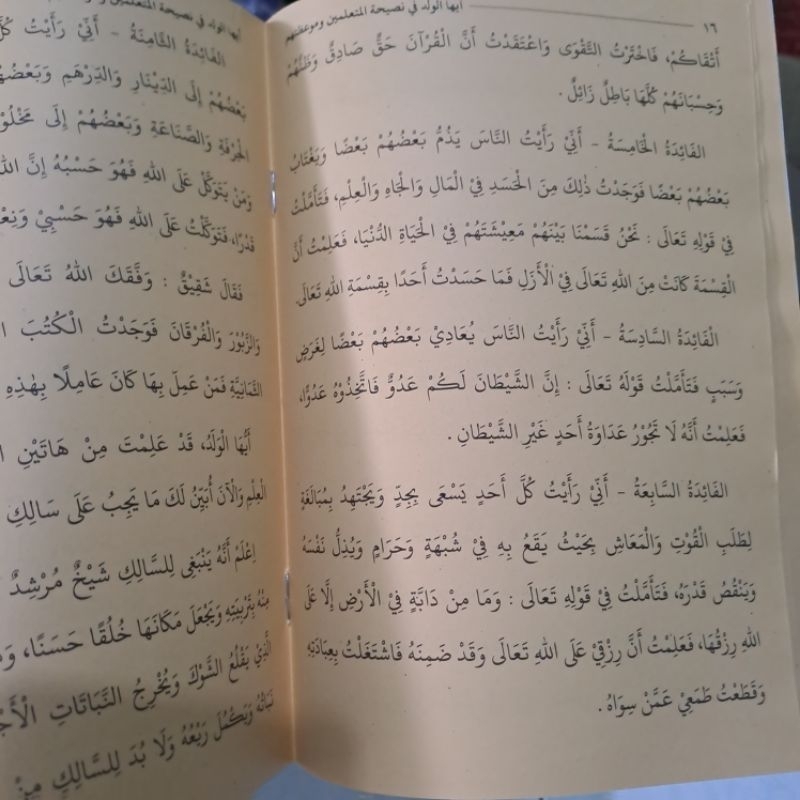 ١٦ أيها الولد في نصيحة المتعلمين وموعظتهم
أَتْقَاكُمْ، فَاخْتَرْتُ التَّقْوَى وَاعْتَقَدْتُ أَنَّ الْقُرْآنَ حَقٌّ صَادِقٌ وَظَنَّهُمْ
وَحِسْبَانَهُمْ كُلَّهَا بَاطِلٌ زَائِلٌ .
الفَائِدَةُ الْخَامِسَةُ - أَنِّيْ رَأَيْتُ النَّاسَ يَذُمُّ بَعْضُهُمْ بَعْضًا وَيَغْتَابُ
بَعْضُهُمْ بَعْضًا فَوَجَدْتُ ذٰلِكَ مِنَ الْحَسَدِ فِيْ الْمَالِ وَالْجَاهِ وَالْعِلْمِ، فَتَأَمَّلْتُ
فِيْ قَوْلِهِ تَعَالَى : نَحْنُ قَسَمْنَا بَيْنَهُمْ مَعِيْشَتَهُمْ فِيْ الْحَيَاةِ الدُّنْيَا، فَعَلِمْتُ أَنَّ
الْقِسْمَةَ كَانَتْ مِنَ اللهِ تَعَالَى فِيْ الْأَزَلِ فَمَا حَسَدْتُ أَحَدًا بِقِسْمَةِ اللهِ تَعَالَى.
الْفَائِدَةُ السَّادِسَةُ - أَنِّيْ رَأَيْتُ النَّاسَ يُعَادِيْ بَعْضُهُمْ بَعْضًا لِغَرَضٍ
وَسَبَبٍ فَتَأَمَّلْتُ قَوْلَهُ تَعَالَى : إِنَّ الشَّيْطَانَ لَكُمْ عَدُوٌّ فَاتَّخِذُوْهُ عَدُوًّا،
فَعَلِمْتُ أَنَّهُ لَا تَجُوْزُ عَدَاوَةُ أَحَدٍ غَيْرِ الشَّيْطَانِ .
الفَائِدَةُ السَّابِعَةُ - أَنِّيْ رَأَيْتُ كُلَّ أَحَدٍ يَسْعَى بِجِدٍّ وَيَجْتَهِدُ بِمُبَالَغَةٍ
لِطَلَبِ الْقُوْتِ وَالْمَعَاشِ بِحَيْثُ يَقَعُ بِهِ فِيْ شُبْهَةٍ وَحَرَامٍ وَيُذِلُّ نَفْسَهُ
وَيَنْقُصُ قَدْرَهُ، فَتَأَمَّلْتُ فِيْ قَوْلِهِ تَعَالَى : وَمَا مِنْ دَابَّةٍ فِيْ الْأَرْضِ إِلَّا عَلَى
اللهِ رِزْقُهَا، فَعَلِمْتُ أَنَّ رِزْقِيْ عَلَى اللهِ تَعَالَى وَقَدْ ضَمِنَهُ فَاشْتَغَلْتُ بِعِبَادَتِهِ
وَقَطَعْتُ طَمَعِيْ عَمَّنْ سِوَاهُ .
أيها الولد في نصيحة المتعلمين
الْفَائِدَةُ الثَّامِنَةُ - أَنِّيْ رَأَيْتُ
بَعْضُهُمْ إِلَى الدِّيْنَارِ وَالدِّرْهَمِ وَبَعْضُهُمْ
الْحِرْفَةِ وَالصِّنَاعَةِ وَبَعْضُهُمْ إِلَى
وَمَنْ يَتَوَكَّلْ عَلَى اللهِ فَهُوَ حَسْبُهُ إِنَّ
قَدْرًا، فَتَوَكَّلْتُ عَلَى اللهِ فَهُوَ حَسْبِيْ
فَقَالَ شَقِيْقٌ : وَفَّقَكَ اللهُ تَعَالَى
وَالزَّبُوْرَ وَالْفُرْقَانَ فَوَجَدْتُ الْكُتُبَ
الثَّمَانِيَةِ فَمَنْ عَمِلَ بِهَا كَانَ عَامِلًا بِهٰذِهِ
أَيُّهَا الْوَلَدُ، قَدْ عَلِمْتَ مِنْ هَاتَيْنِ
الْعِلْمِ وَالْآنَ أُبَيِّنُ لَكَ مَا يَجِبُ عَلَى سَالِكِ
اِعْلَمْ أَنَّهُ يَنْبَغِى لِلسَّالِكِ شَيْخٌ مُرْشِدٌ
مِنْهُ بِتَرْبِيَتِهِ وَيَجْعَلَ مَكَانَهَا خُلُقًا حَسَنًا،
الَّذِيْ يَقْلَعُ الشَّوْكَ وَيُخْرِجُ النَّبَاتَاتِ
نَبَاتُهُ وَيَكْمُلَ رَيْعُهُ وَلَا بُدَ لِلسَّالِكِ مِنْ